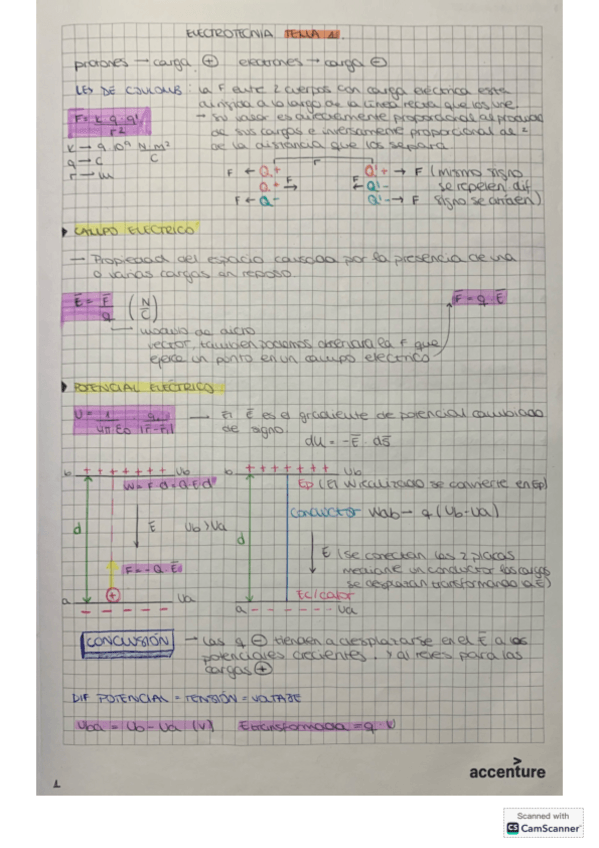 ELECTROTECNIA TEMA 1.
protones → carga ⊕ electrones → carga ⊖
LEY DE COULOMB : la F entre 2 cuerpos con carga eléctrica esta
dirigida a lo largo de la linea recta que los une.
F = K q q' / r²
→ Su valor es directamente proporcional al producto
de sus cargas e inversamente proporcional al ²
de la distancia que los separa
K → 9.10⁹ N.m² / C
q → C
r → m
r
F ← Q + Q' + → F (mismo signo
Q + → F F ← Q' - se repelen dif
F ← Q - Q' - → F signo se atraen)
CAMPO ELECTRICO
— Propiedad del espacio causada por la presencia de una
o varias cargas en reposo.
E = F / q (N / C)
F = q · E
vector, tambien podemos
ejerce un punto en un campo electrico
POTENCIAL ELÉCTRICO
→ El E es el gradiente de potencial cambiado
de signo.
du = -E · ds
b + + + + + + + Ub
W = F·d = Q·E·d
d
E
Ub > Ua
F = -Q·E
a - - - - - Ua
b + + + + + + + Ub
Ep (El W realizado se convierte en Ep)
conductor Wab → q (Ub - Ua)
d
E (se conectan las 2 placas
mediante un conductor las cargas
se desplazan transformando a E)
Ec/calor
a - - - - - - Ua
CONCLUSIÓN → Las q ⊖ tienden a desplazarse en el E a los
potenciales crecientes. Y al reves para las
cargas ⊕
DIF POTENCIAL = TENSIÓN = VOLTAJE
Uba = Ub - Ua (V) Etransformada = q · U
accenture
1
Scanned with
CS CamScanner